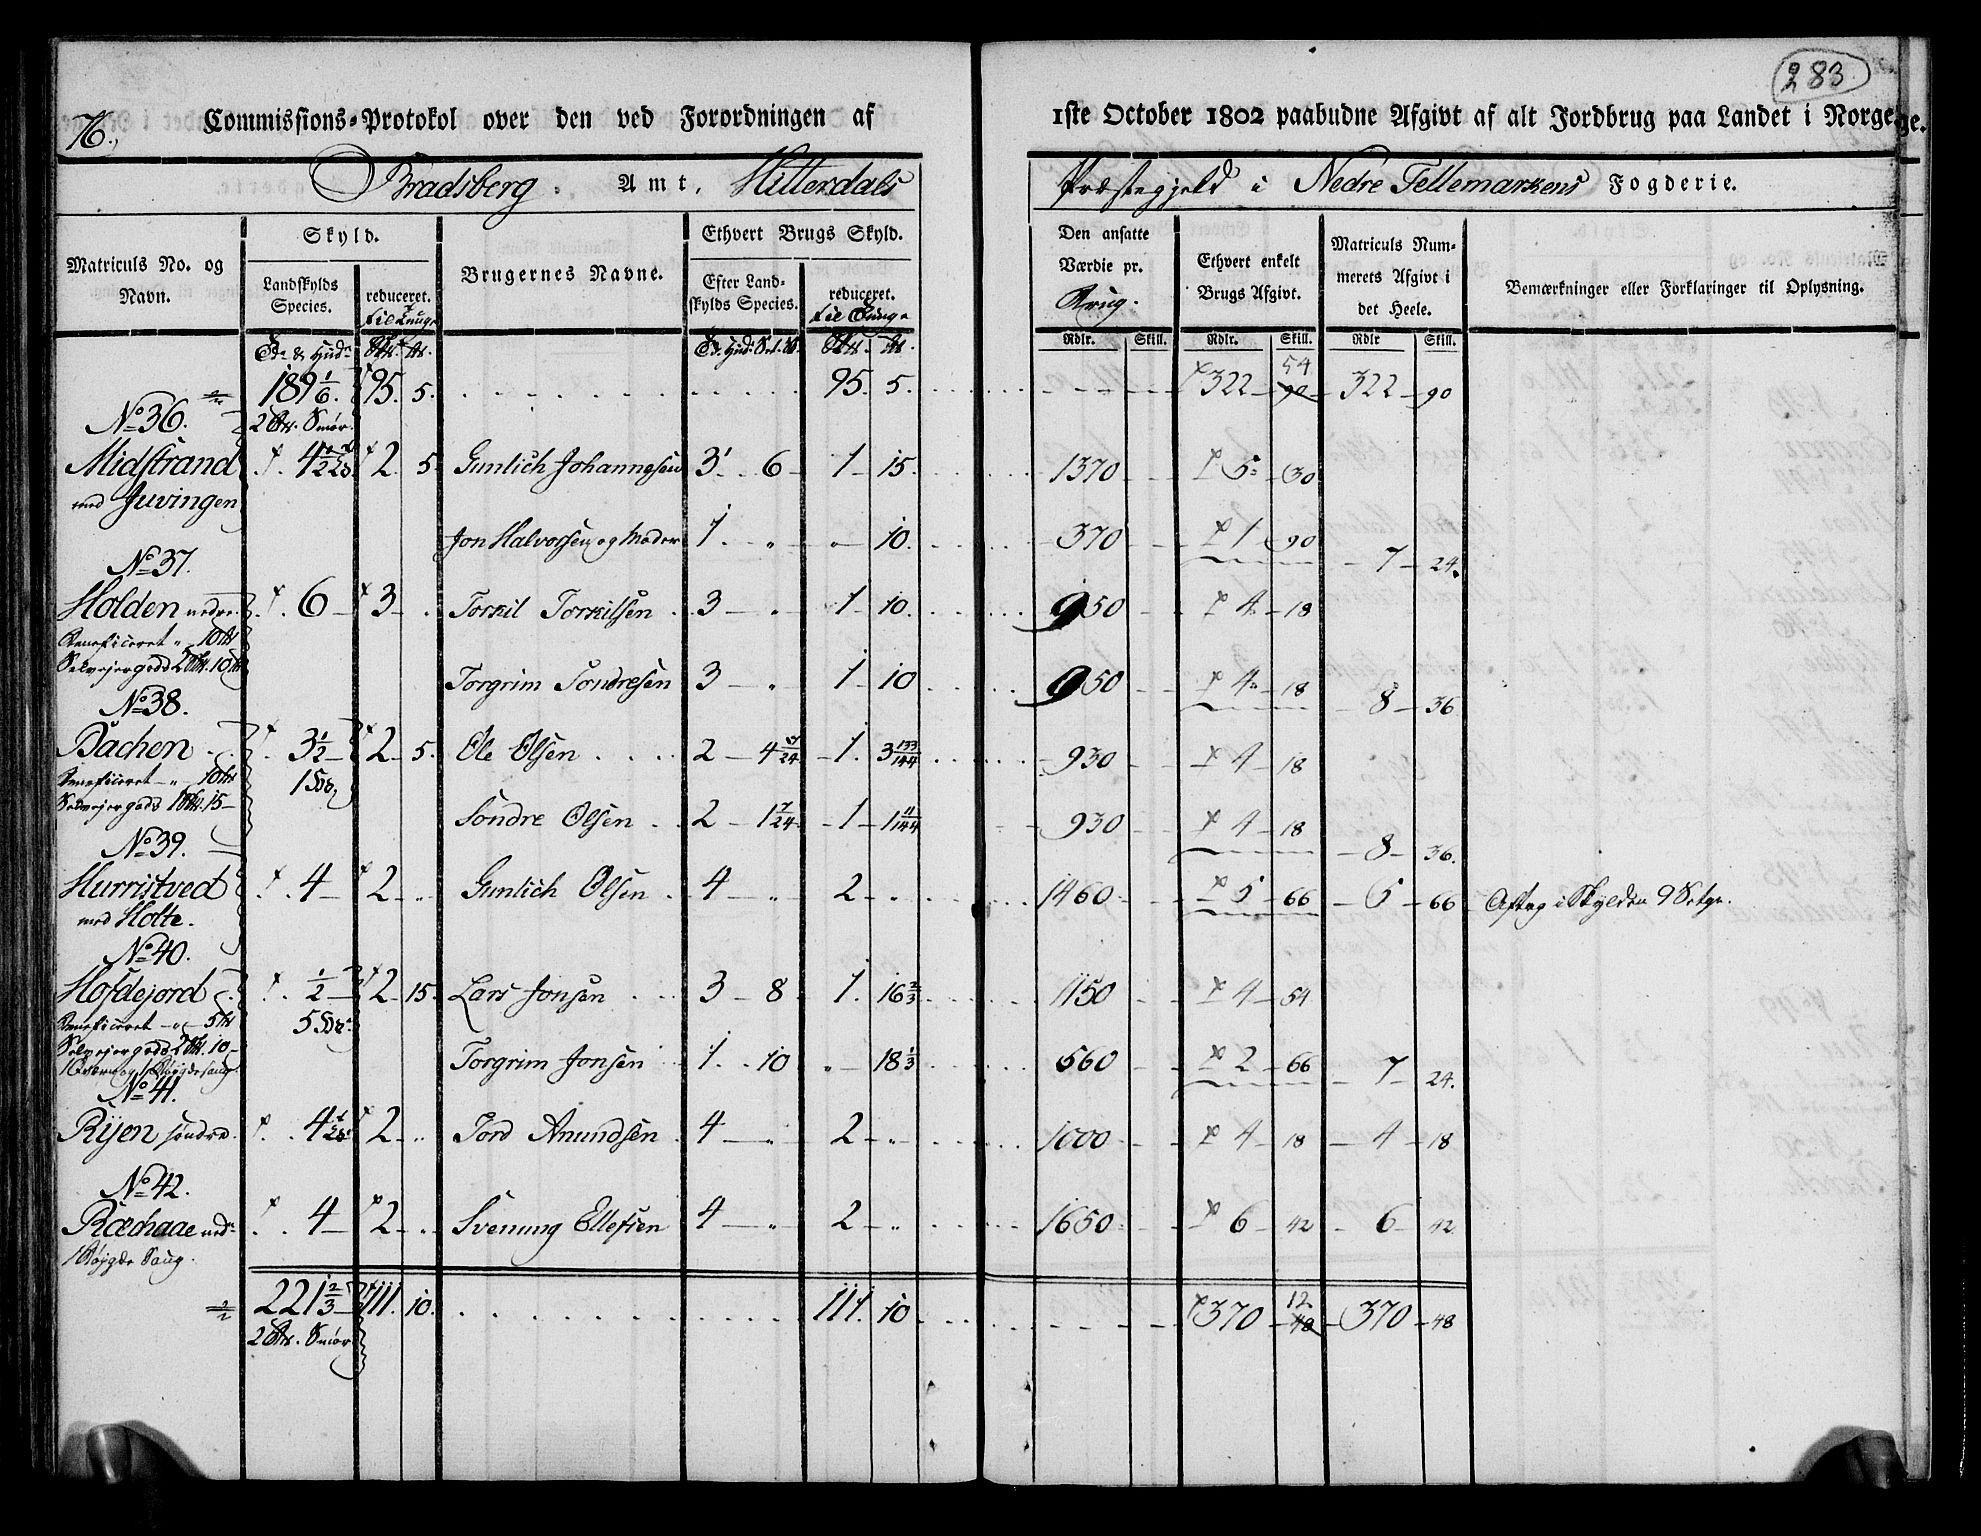 283
76.
Commissions-Protokol over den ved Forordningen af 1ste October 1802 paabudne Afgivt af alt Jordbrug paa Landet i Norge.
Bradsberg Amt, Hitterdals Præstegjeld i Nedre Tellemarkens Fogderie.
Matriculs No. og Navn.
Skyld.
Landskylds Species.
reduceret.
Brugernes Navne.
Ethvert Brugs Skyld.
Efter Landskylds Species.
reduceret.
Den ansatte Værdie pr. Brug.
Ethvert enkelt Brugs Afgivt.
Matriculs Nummerets Afgivt i det Heele.
Bemærkninger eller Forklaringer til Oplysning.
Rdlr. Skill. Rdlr. Skill. Rdlr Skill.
189 1/6. 95. 5. 95. 5. 322 54 90 322 90
No 36. 2 Smør.
Midstrand 2 5. Gunlich Johannesen 3 6 1 15. 1370 5 30
med Juvingen
Jon Halvorsen og Moder 1 " " 10. 370 1 90 7 24.
No 37.
Holden nedre 6 3 Torkil Torkilsen 3 " 1 10. 950 4 18
Beneficeret " 10
Selvejergods 2. 10
Torgrim Sondresen 3 " 1 10 950 4 18 8 36
No 38.
Bachen 3 1/2 2 5. Ole Olsen 2 4 1. 3 133/144 930 4 18
Beneficeret " 10
Selvejergods 1. 15
Sondre Olsen 2 1 7/24 1 1 11/144 930 4 18 8 36.
No 39.
Hurristvedt 4 2 " Gunlich Olsen 4 " 2 " 1460 5 66 5 66 Aftag i Skylden 9 Setge.
med Holte.
No 40.
Hofdejord 1/2 2 15. Lars Jonsen 3 8 1. 16 2/3 1150 4 54
Beneficeret " 5
Selvejergods 2. 10
Torgrim Jonsen 1. 10 " 18 1/3 560 2 66 7 24.
No 41.
Rijen søndre 2 " Tord Anundsen 4 " 2 " 1000 4 18 4 18
No 42.
Ræehaae ned 4 2 " Svenung Ellefsen 4 " 2 " 1650 6 42 6 42
1 Bøigde Saug.
221 2/3 111. 10. 111. 10 370 12. 48 370 48
2 Smør